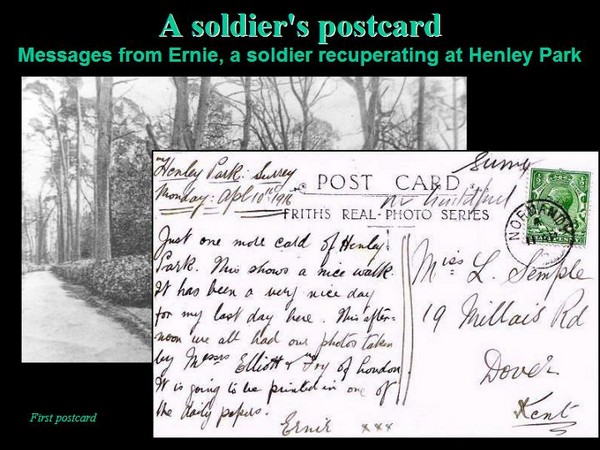 A soldier's postcard
Messages from Ernie, a soldier recuperating at Henley Park
Henley Park: Surrey
Monday: Apl 10th 1916
Surrey
POST CARD
nr Guildford
FRITHS REAL-PHOTO SERIES
NORMANDY
HALFPENNY
Just one more card of Henley
Park. This shows a nice walk.
It has been a very nice day
for my last day here. This after-
noon we all had our photos taken
by Messrs Elliott & Fry of London.
It is going to be printed in one of
the daily papers.
Ernie xxx
Miss L. Semple
19 Millais Rd
Dover
Kent
First postcard